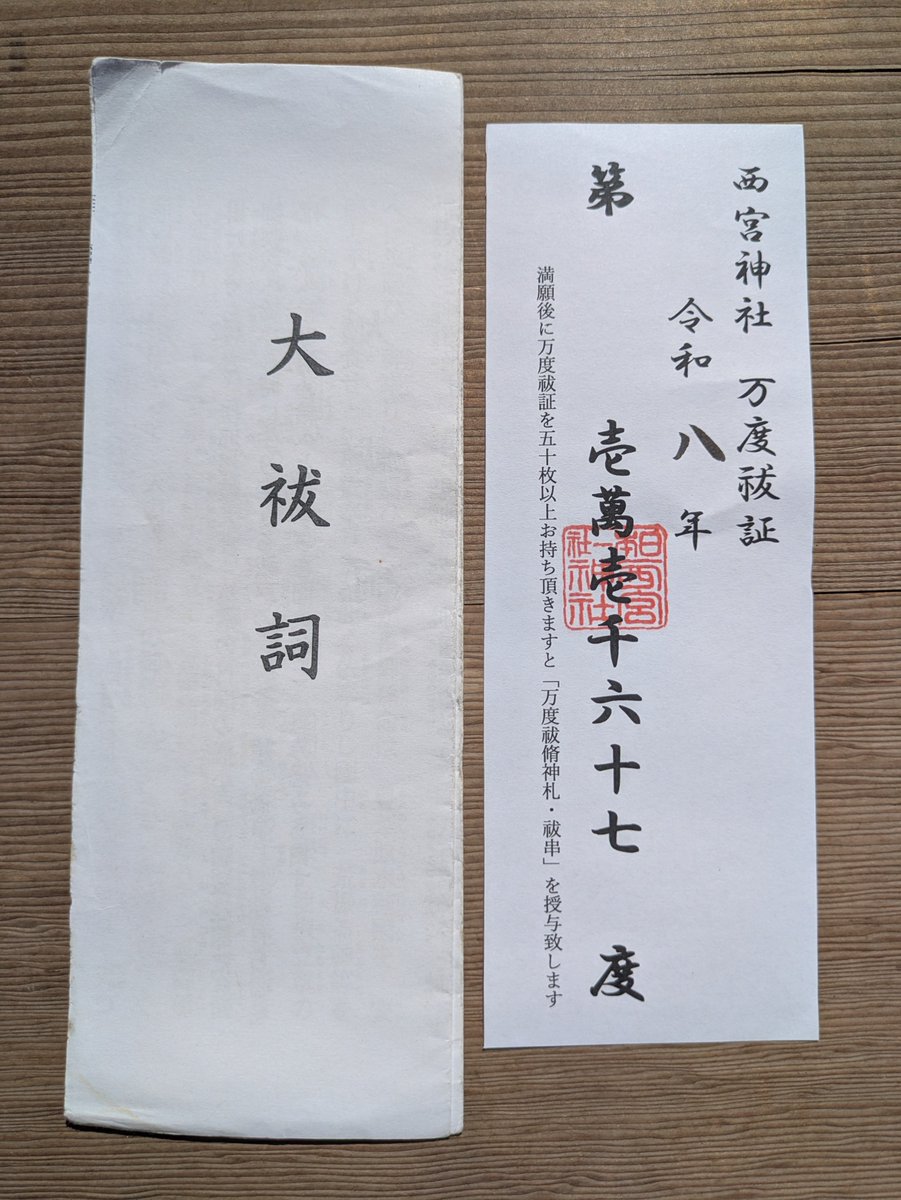 大祓詞
西宮神社 万度祓証
令和八年
第 壱萬壱千六十七 度
満願後に万度祓証を五十枚以上お持ち頂きますと「万度祓脩神札・祓串」を授与致します